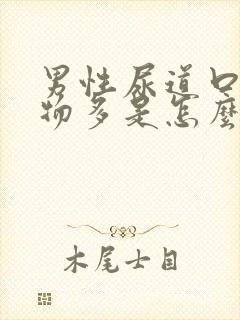 男性尿道口
物多是怎麼
木尾士目